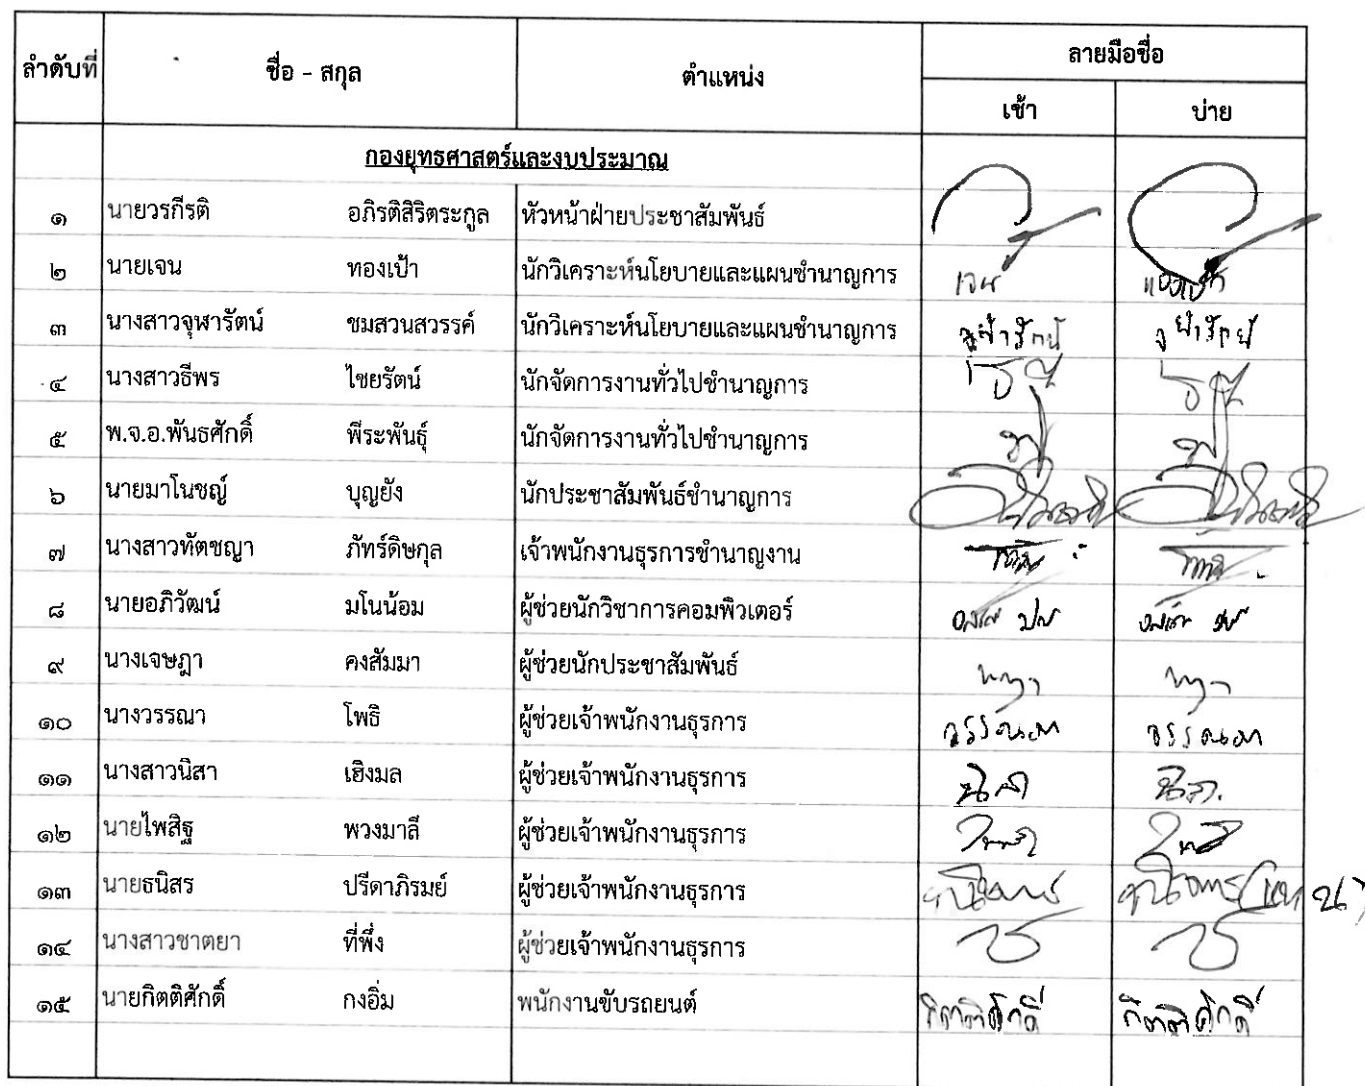 ลำดับที่ ชื่อ - สกุล ตำแหน่ง ลายมือชื่อ
เช้า บ่าย
กองยุทธศาสตร์และงบประมาณ
๑ นายวรกีรติ อภิรติสิริตระกูล หัวหน้าฝ่ายประชาสัมพันธ์
๒ นายเจน ทองเป้า นักวิเคราะห์นโยบายและแผนชำนาญการ เจน ทองเป้า
๓ นางสาวจุฬารัตน์ ชมสวนสวรรค์ นักวิเคราะห์นโยบายและแผนชำนาญการ จุฬารัตน์ จุฬารัตน์
๔ นางสาวธีพร ไชยรัตน์ นักจัดการงานทั่วไปชำนาญการ
๕ พ.จ.อ.พันธศักดิ์ พีระพันธุ์ นักจัดการงานทั่วไปชำนาญการ
๖ นายมาโนชญ์ บุญยัง นักประชาสัมพันธ์ชำนาญการ
๗ นางสาวทัตชญา ภัทร์ดิษกุล เจ้าพนักงานธุรการชำนาญงาน
๘ นายอภิวัฒน์ มโนน้อม ผู้ช่วยนักวิชาการคอมพิวเตอร์
๙ นางเจษฎา คงสัมมา ผู้ช่วยนักประชาสัมพันธ์
๑๐ นางวรรณา โพธิ ผู้ช่วยเจ้าพนักงานธุรการ วรรณา วรรณา
๑๑ นางสาวนิสา เฮิงมล ผู้ช่วยเจ้าพนักงานธุรการ นิสา นิสา
๑๒ นายไพสิฐ พวงมาลี ผู้ช่วยเจ้าพนักงานธุรการ
๑๓ นายธนิสร ปรีดาภิรมย์ ผู้ช่วยเจ้าพนักงานธุรการ
๑๔ นางสาวชาตยา ที่พึ่ง ผู้ช่วยเจ้าพนักงานธุรการ
๑๕ นายกิตติศักดิ์ กงอิ่ม พนักงานขับรถยนต์ กิตติศักดิ์ กิตติศักดิ์